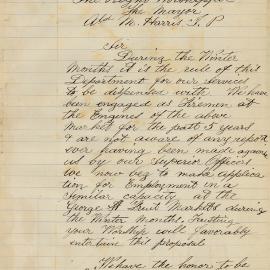 The Right Worshipful
The Mayor
Ald M. Harris. J. P
Sir
During the Winter
Months it is the rule of this
Department for our services
to be dispensed with. We have
been engaged as Firemen at
the Engines of the above
Market for the past 3 years
& are not aware of any report
ever having been made against
us by our Superior Officers
we now beg to make applica
tion for Employment in a
similar capacity at the
George St Fruit Markets during
the Winter Months, Trusting
your Worship will favorably
entertain this proposal
We have the honor to be